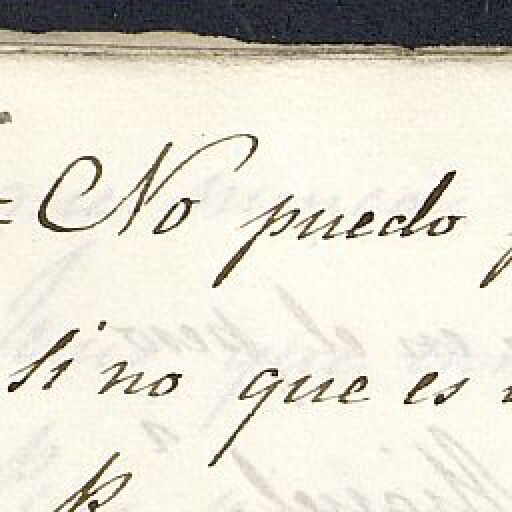 = No puedo
sino que es